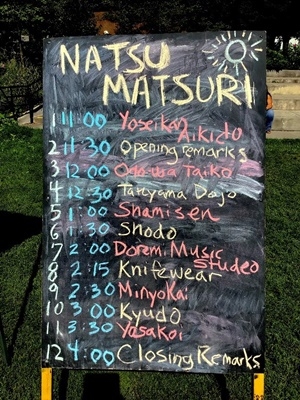 NATSU
MATSURI
1 11:00 Yoseikan Aikido
2 11:30 Opening remarks
3 12:00 Taiko
4 12:30 Tateyama Dojo
5 1:00 Shamisen
6 1:30 Shodo
7 2:00 Doremi Music Studeo
8 2:15 Knitewear
9 2:30 Minyokai
10 3:00 Kyudo
11 3:30 Yosakoi
12 4:00 Closing Remarks